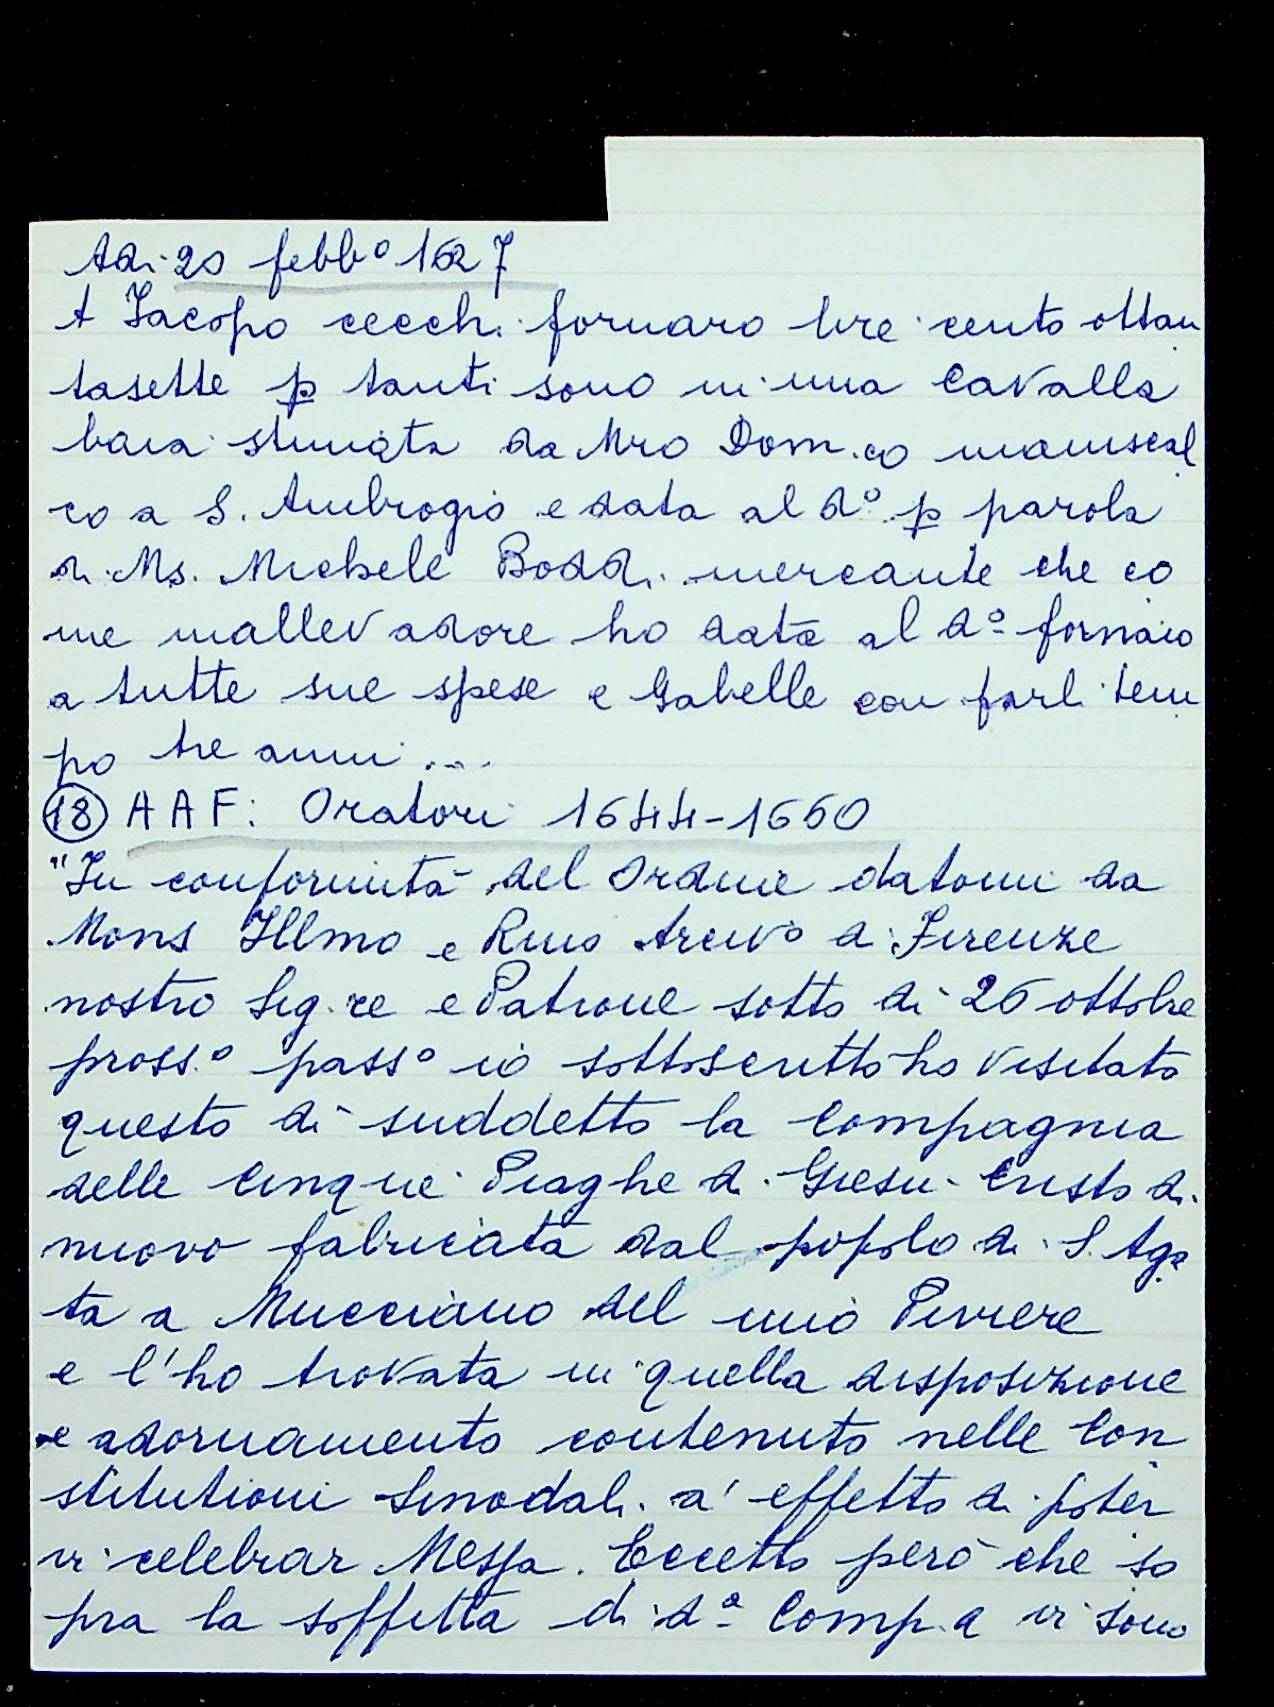 Adi 20 febb° 1627
A Jacopo cecchi fornaro lire cento ottan
tasette p tanti sono in una Cavalla
baia stimata da Mro Dom.co maniscal
co a S. Ambrogio e data al d° p parola
di Ms. Michele Boddi mercante che co
me mallevadore ho data al d° fornaio
a tutte sue spese e Gabelle con farli tem
po tre anni ...
18 AAF: Oratori 1644-1660
"In conformità del Ordine datomi da
Mons Illmo e Rmo Arciv° di Firenze
nostro Sig.re e Patrone sotto dì 26 ottobre
pross.° pass° io sottoscritto ho visitato
questo dì suddetto la Compagnia
delle Cinque Piaghe di Giesu Cristo di
nuovo fabricata dal popolo di S. Aga
ta a Mucciano del mio Piviere
e l'ho trovata in quella disposizione
e adornamento contenuto nelle Con
stitutioni Sinodali a' effetto di poter
vi celebrar Messa. Eccetto però che so
pra la soffitta di d.ª Comp.a vi sono